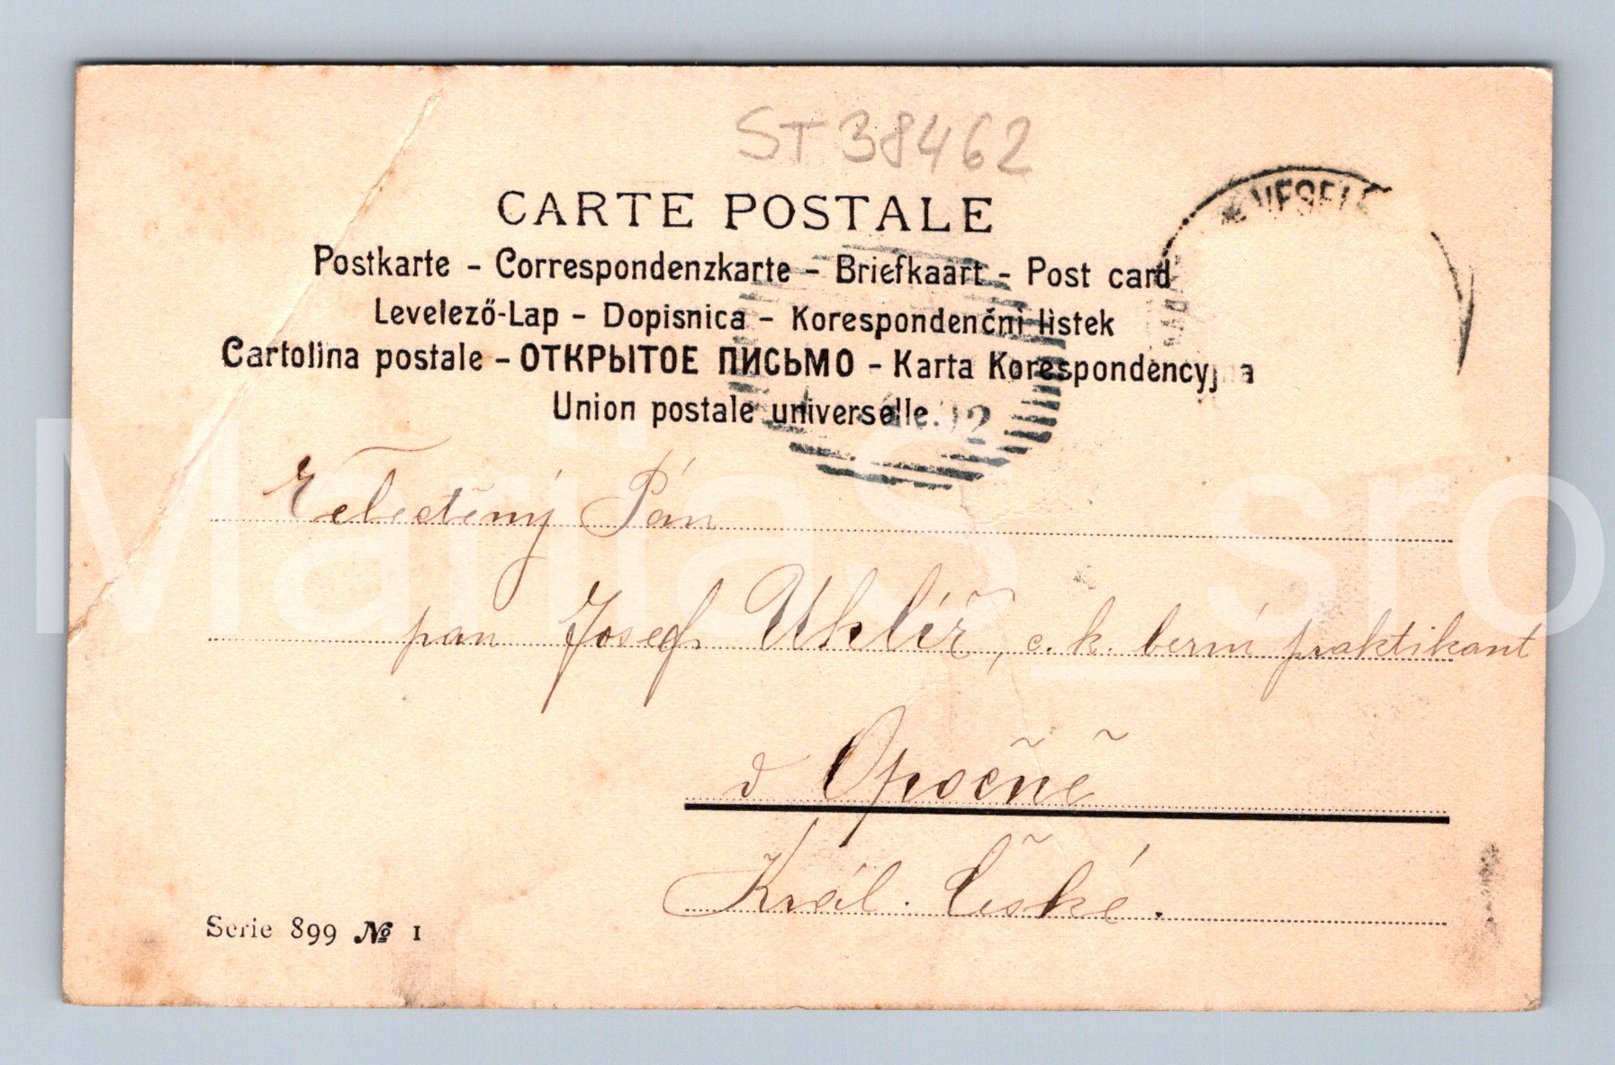 ST 38462
CARTE POSTALE
VESEL
Postkarte - Correspondenzkarte - Briefkaart - Post card
Levelező-Lap - Dopisnica - Korespondenční listek
Cartolina postale - ОТКРЫТОЕ ПИСЬМО - Karta Korespondencyjna
Union postale universelle.
02
Velectěný Pán
pan Josef Uhlíř, c. k. berní praktikant
v Opočně
Král. České.
Serie 899 № 1
MarijaS_sro